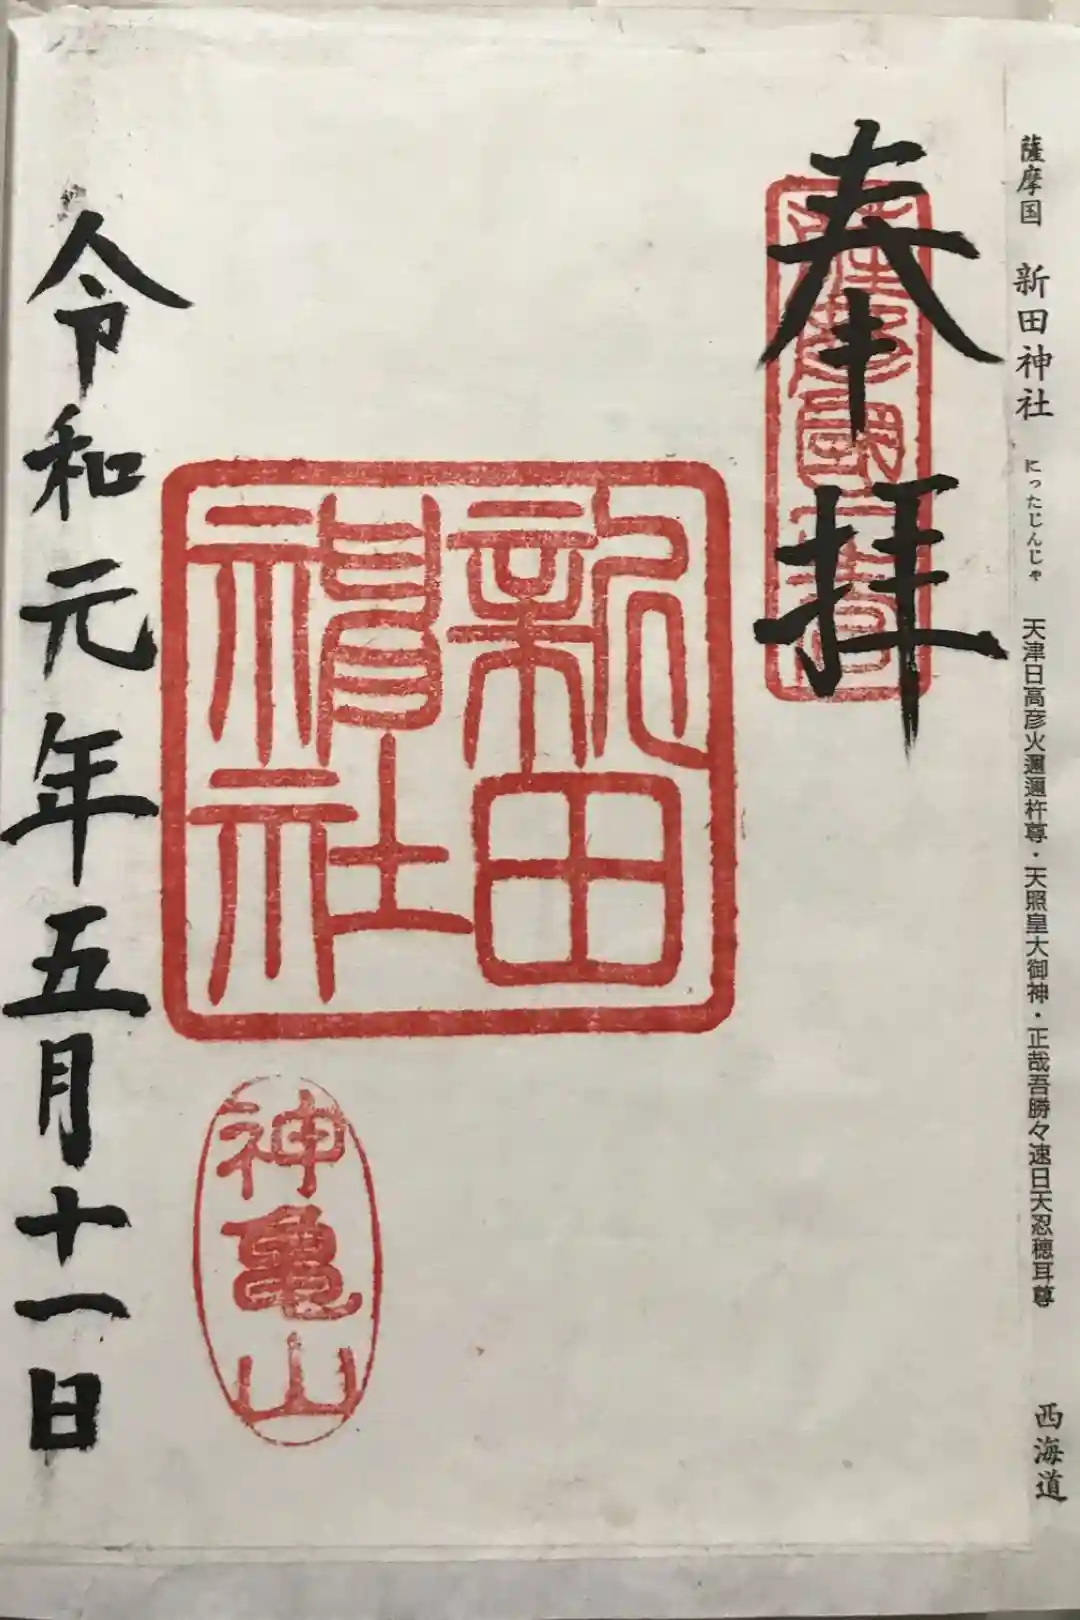 薩摩国 新田神社 にったじんじゃ 天津日高彦火邇邇杵尊・天照皇大御神・正哉吾勝々速日天忍穂耳尊 西海道
奉拝
薩摩國一宮
新田
神社
神亀山
令和元年五月十一日